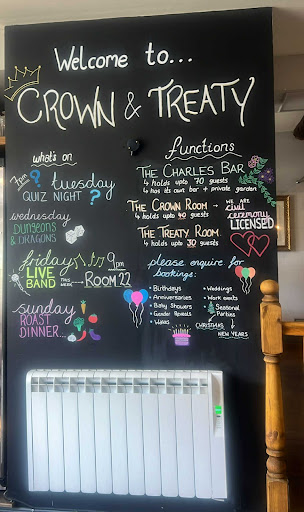 Welcome to...
CROWN & TREATY
what's on
7pm
? tuesday
QUIZ NIGHT ?
wednesday
DUNGEONS
& DRAGONS
friday 9pm
LIVE
BAND
THIS WEEK →
ROOM 22
sunday
ROAST
DINNER...
functions
THE CHARLES BAR
↳ holds upto 70 guests
↳ has its own bar + private garden
THE CROWN ROOM →
↳ holds upto 40 guests
THE TREATY ROOM
↳ holds upto 30 guests
WE ARE
civil
ceremony
LICENSED
please enquire for
bookings:
• Birthdays
• Anniversaries
• Baby Showers
• Gender Reveals
• Wakes
• Weddings
• Work events
• Seasonal
Parties
CHRISTMAS
NEW YEARS